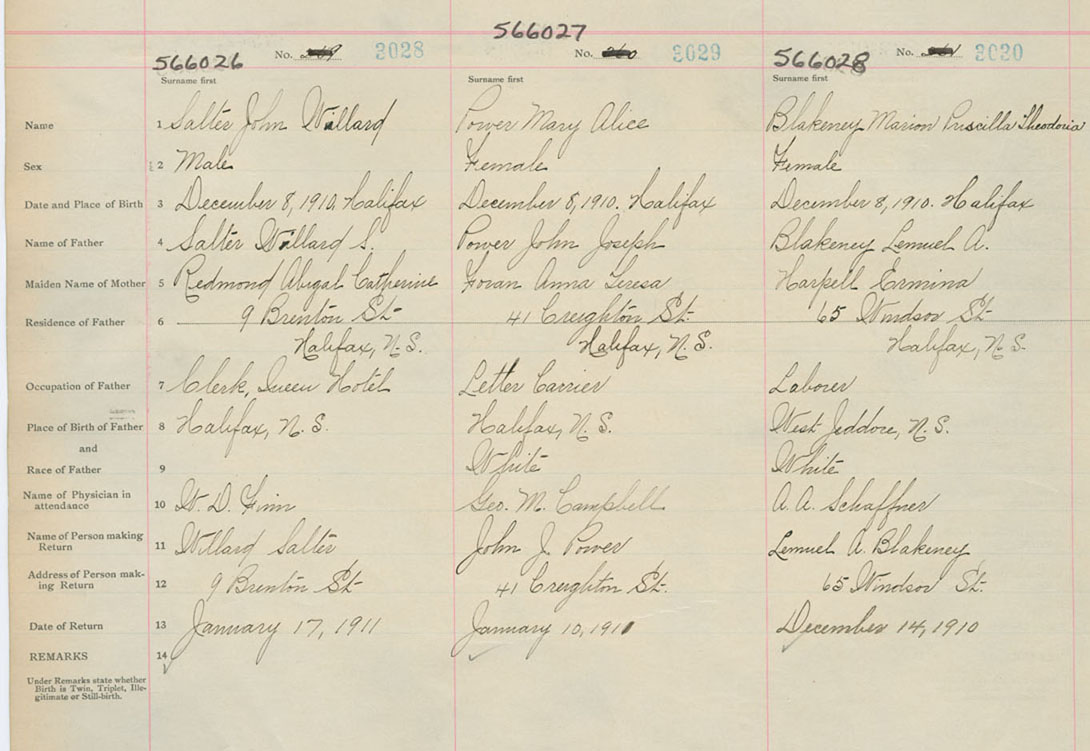 566027
566026 No. 3028 No. 3029 566028 No. 3030
Surname first Surname first Surname first
Name 1 Salter John Willard Power Mary Alice Blakeney Marion Priscilla Theodoria
Sex 2 Male Female Female
Date and Place of Birth 3 December 8, 1910, Halifax December 8, 1910. Halifax December 8, 1910. Halifax
Name of Father 4 Salter Willard S. Power John Joseph Blakeney Lemuel A.
Maiden Name of Mother 5 Redmond Abigal Catherine Foran Anna Teresa Harpell Ermina
Residence of Father 6 9 Brenton St. 41 Creighton St. 65 Windsor St.
Halifax, N.S. Halifax, N.S. Halifax, N.S.
Occupation of Father 7 Clerk, Queen Hotel Letter Carrier Laborer
Place of Birth of Father 8 Halifax, N.S. Halifax, N.S. West Jeddore, N.S.
and
Race of Father 9 White White
Name of Physician in
attendance 10 W. D. Finn Geo. M. Campbell A. A. Schaffner
Name of Person making
Return 11 Willard Salter John J. Power Lemuel A. Blakeney
Address of Person mak-
ing Return 12 9 Brenton St. 41 Creighton St. 65 Windsor St.
Date of Return 13 January 17, 1911 January 10, 1911 December 14, 1910
REMARKS 14
Under Remarks state whether
Birth is Twin, Triplet, Ille-
gitimate or Still-birth.